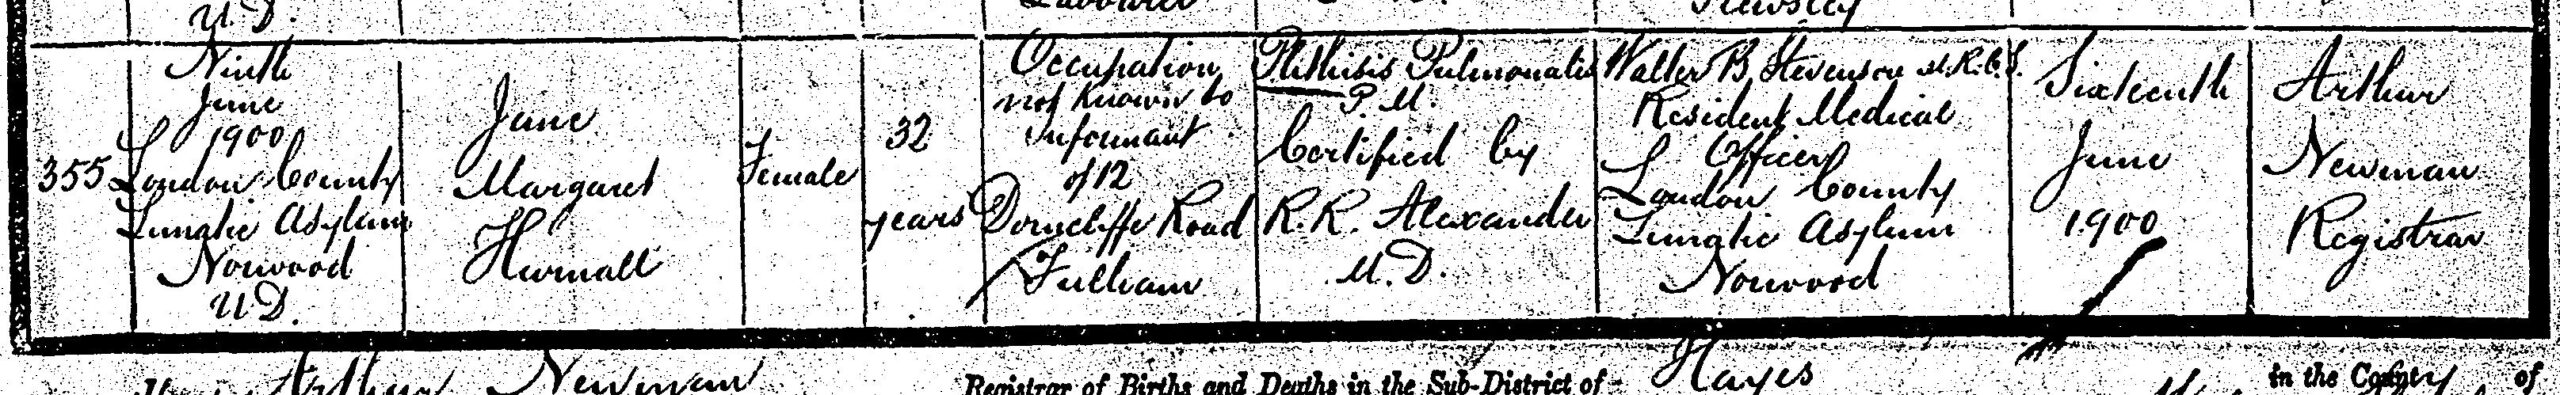 U.D.
355
Ninth
June
1900
London County
Lunatic Asylum
Norwood
U.D.
Jane
Margaret
Hurnall
Female
32
years
Occupation
not known to
Informant
of 12
Dorncliffe Road
Fulham
Phthisis Pulmonalis
P.M.
Certified by
R.R. Alexander
M.D.
Walter B. Stevenson M.R.C.S.
Resident Medical
Officer
London County
Lunatic Asylum
Norwood
Sixteenth
June
1900
Arthur
Newman
Registrar
Arthur Newman Registrar of Births and Deaths in the Sub-District of Hayes in the County of